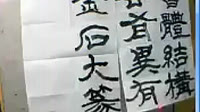 體結構
異有
金石大篆